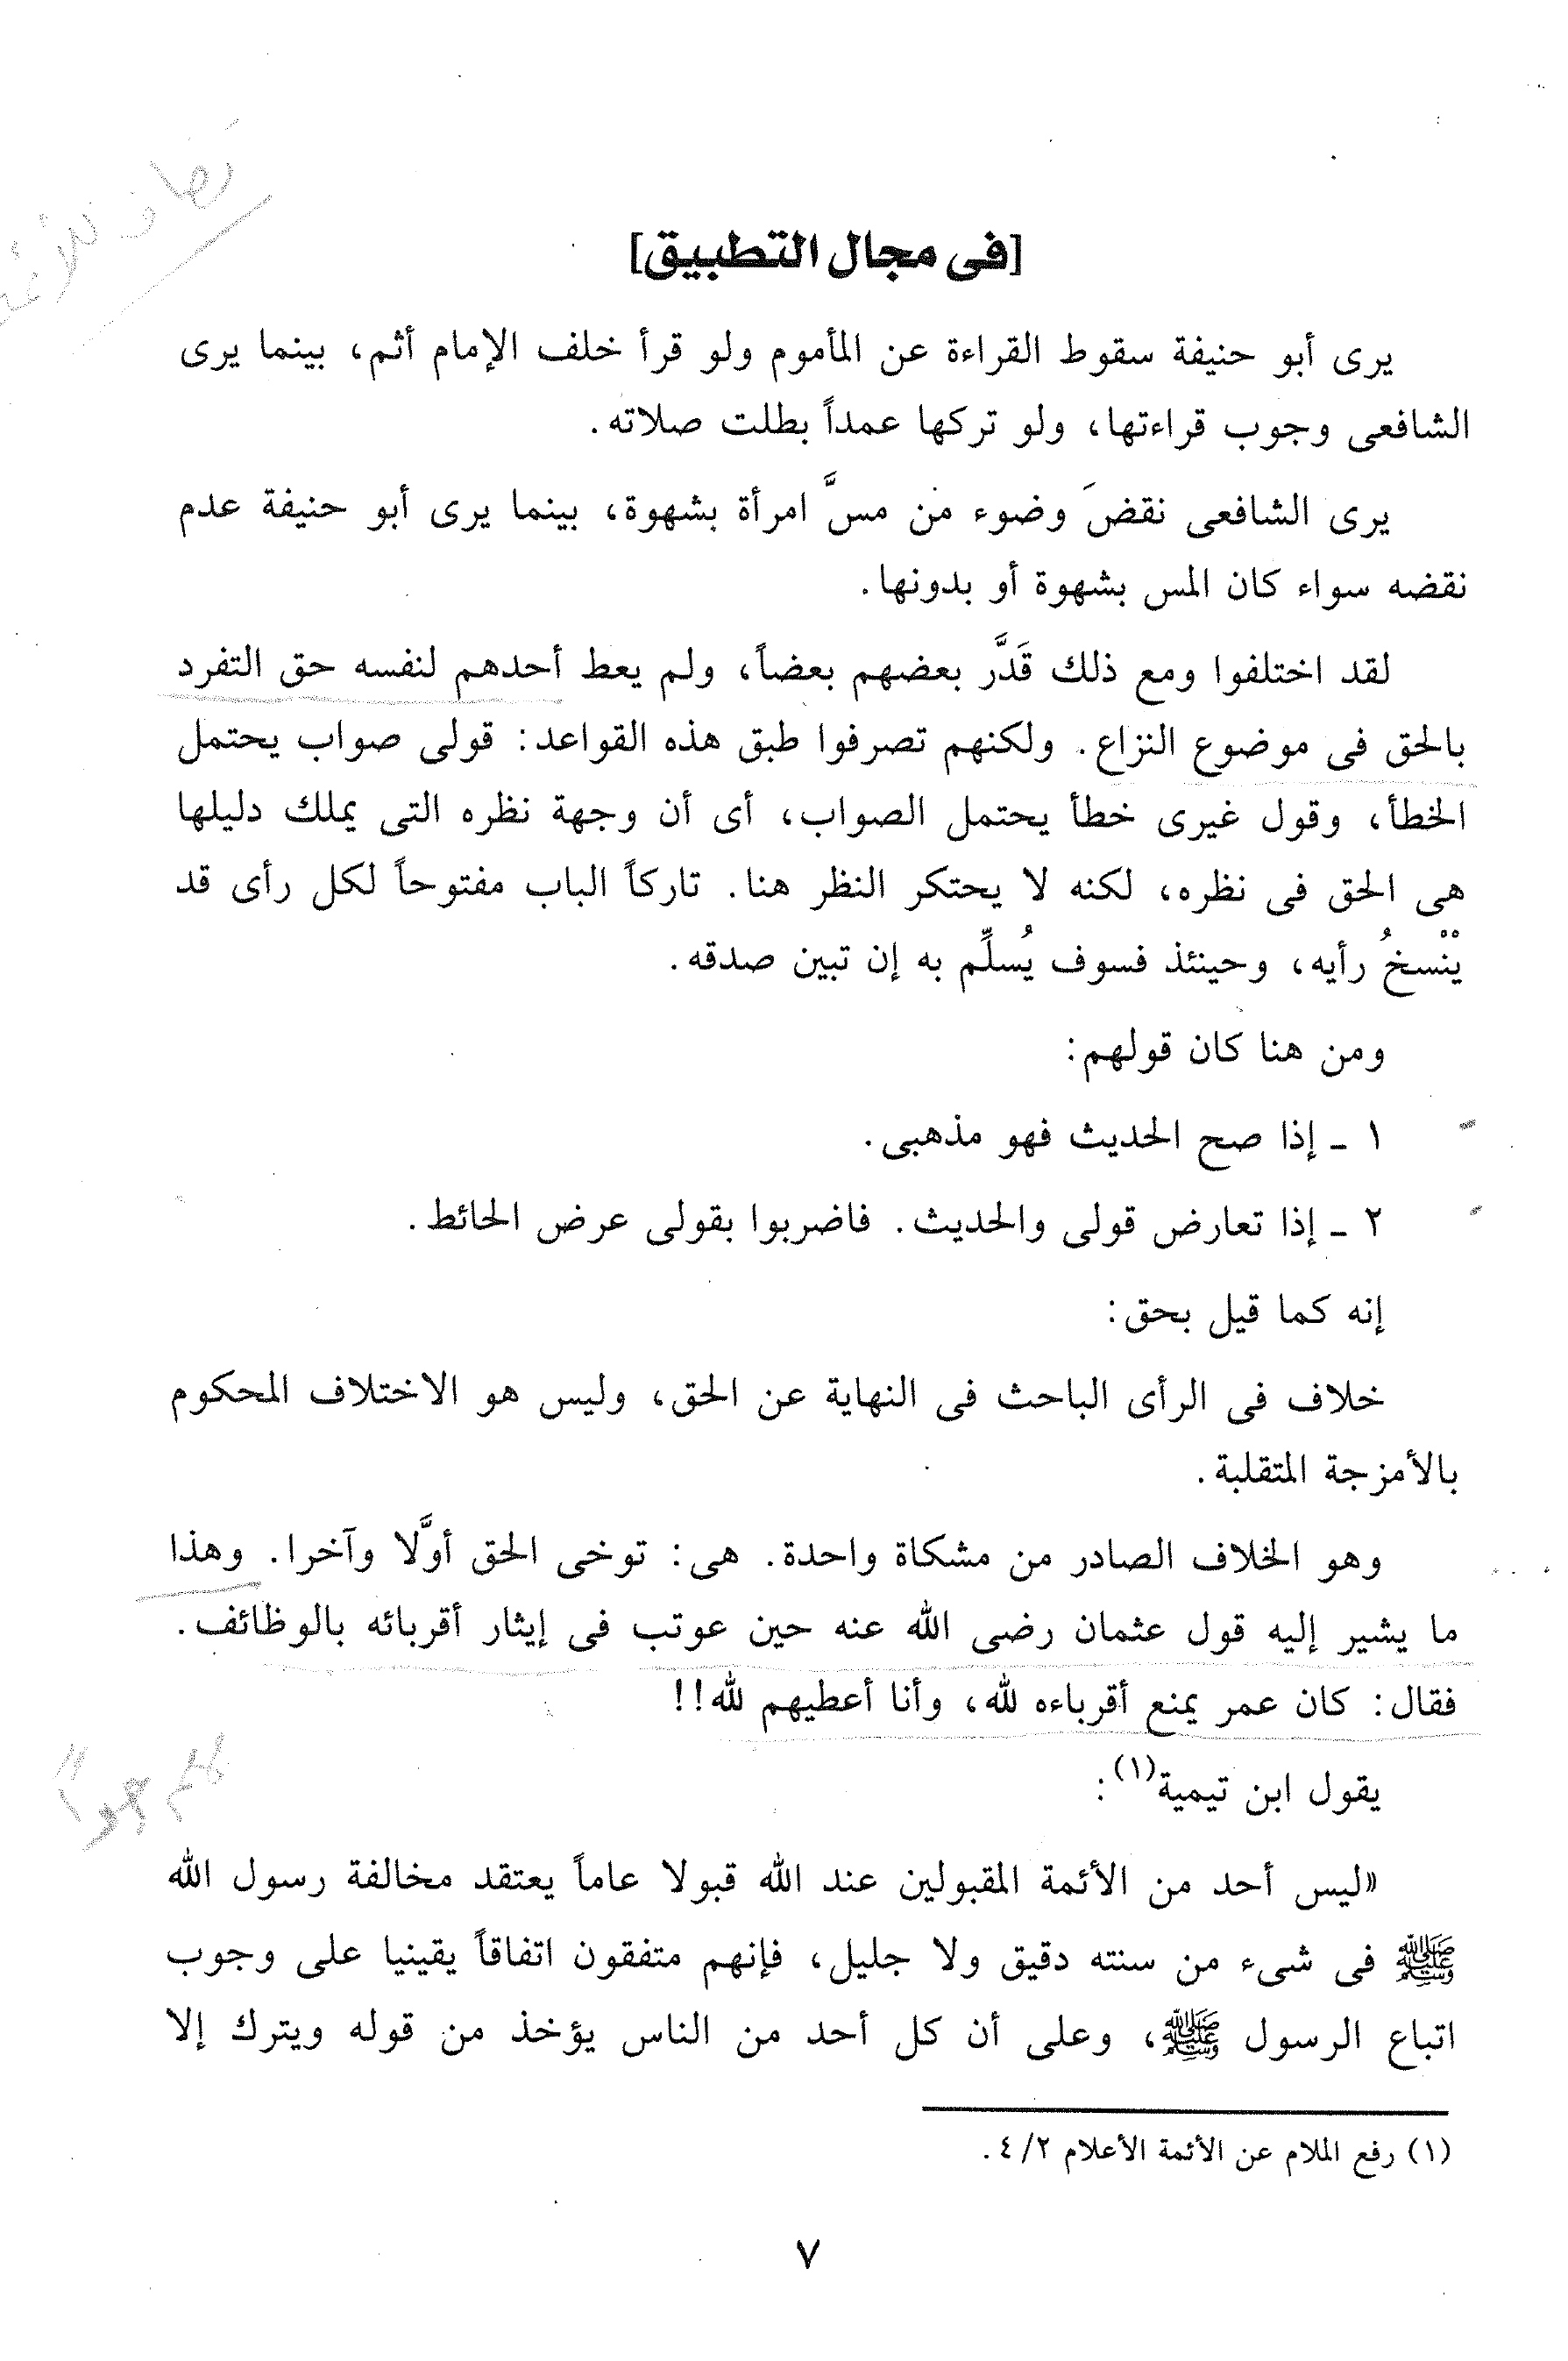 [فى مجال التطبيق]
يرى أبو حنيفة سقوط القراءة عن المأموم ولو قرأ خلف الإمام أثم، بينما يرى
الشافعى وجوب قراءتها، ولو تركها عمداً بطلت صلاته.
يرى الشافعى نقضَ وضوء من مسَّ امرأة بشهوة، بينما يرى أبو حنيفة عدم
نقضه سواء كان المس بشهوة أو بدونها.
لقد اختلفوا ومع ذلك قَدَّر بعضهم بعضاً، ولم يعط أحدهم لنفسه حق التفرد
بالحق فى موضوع النزاع. ولكنهم تصرفوا طبق هذه القواعد: قولى صواب يحتمل
الخطأ، وقول غيرى خطأ يحتمل الصواب، أى أن وجهة نظره التى يملك دليلها
هى الحق فى نظره، لكنه لا يحتكر النظر هنا. تاركاً الباب مفتوحاً لكل رأى قد
يْنْسخُ رأيه، وحينئذ فسوف يُسلِّم به إن تبين صدقه.
ومن هنا كان قولهم:
١ ـ إذا صح الحديث فهو مذهبى.
٢ ـ إذا تعارض قولى والحديث. فاضربوا بقولى عرض الحائط.
إنه كما قيل بحق:
خلاف فى الرأى الباحث فى النهاية عن الحق، وليس هو الاختلاف المحكوم
بالأمزجة المتقلبة.
وهو الخلاف الصادر من مشكاة واحدة. هى: توخى الحق أوَّلا وآخرا. وهذا
ما يشير إليه قول عثمان رضى الله عنه حين عوتب فى إيثار أقربائه بالوظائف.
فقال: كان عمر يمنع أقرباءه لله، وأنا أعطيهم لله!!
يقول ابن تيمية(١):
«ليس أحد من الأئمة المقبولين عند الله قبولا عاماً يعتقد مخالفة رسول الله
ﷺ فى شىء من سنته دقيق ولا جليل، فإنهم متفقون اتفاقاً يقينيا على وجوب
اتباع الرسول ﷺ، وعلى أن كل أحد من الناس يؤخذ من قوله ويترك إلا
(١) رفع الملام عن الأئمة الأعلام ٤/٢.
٧